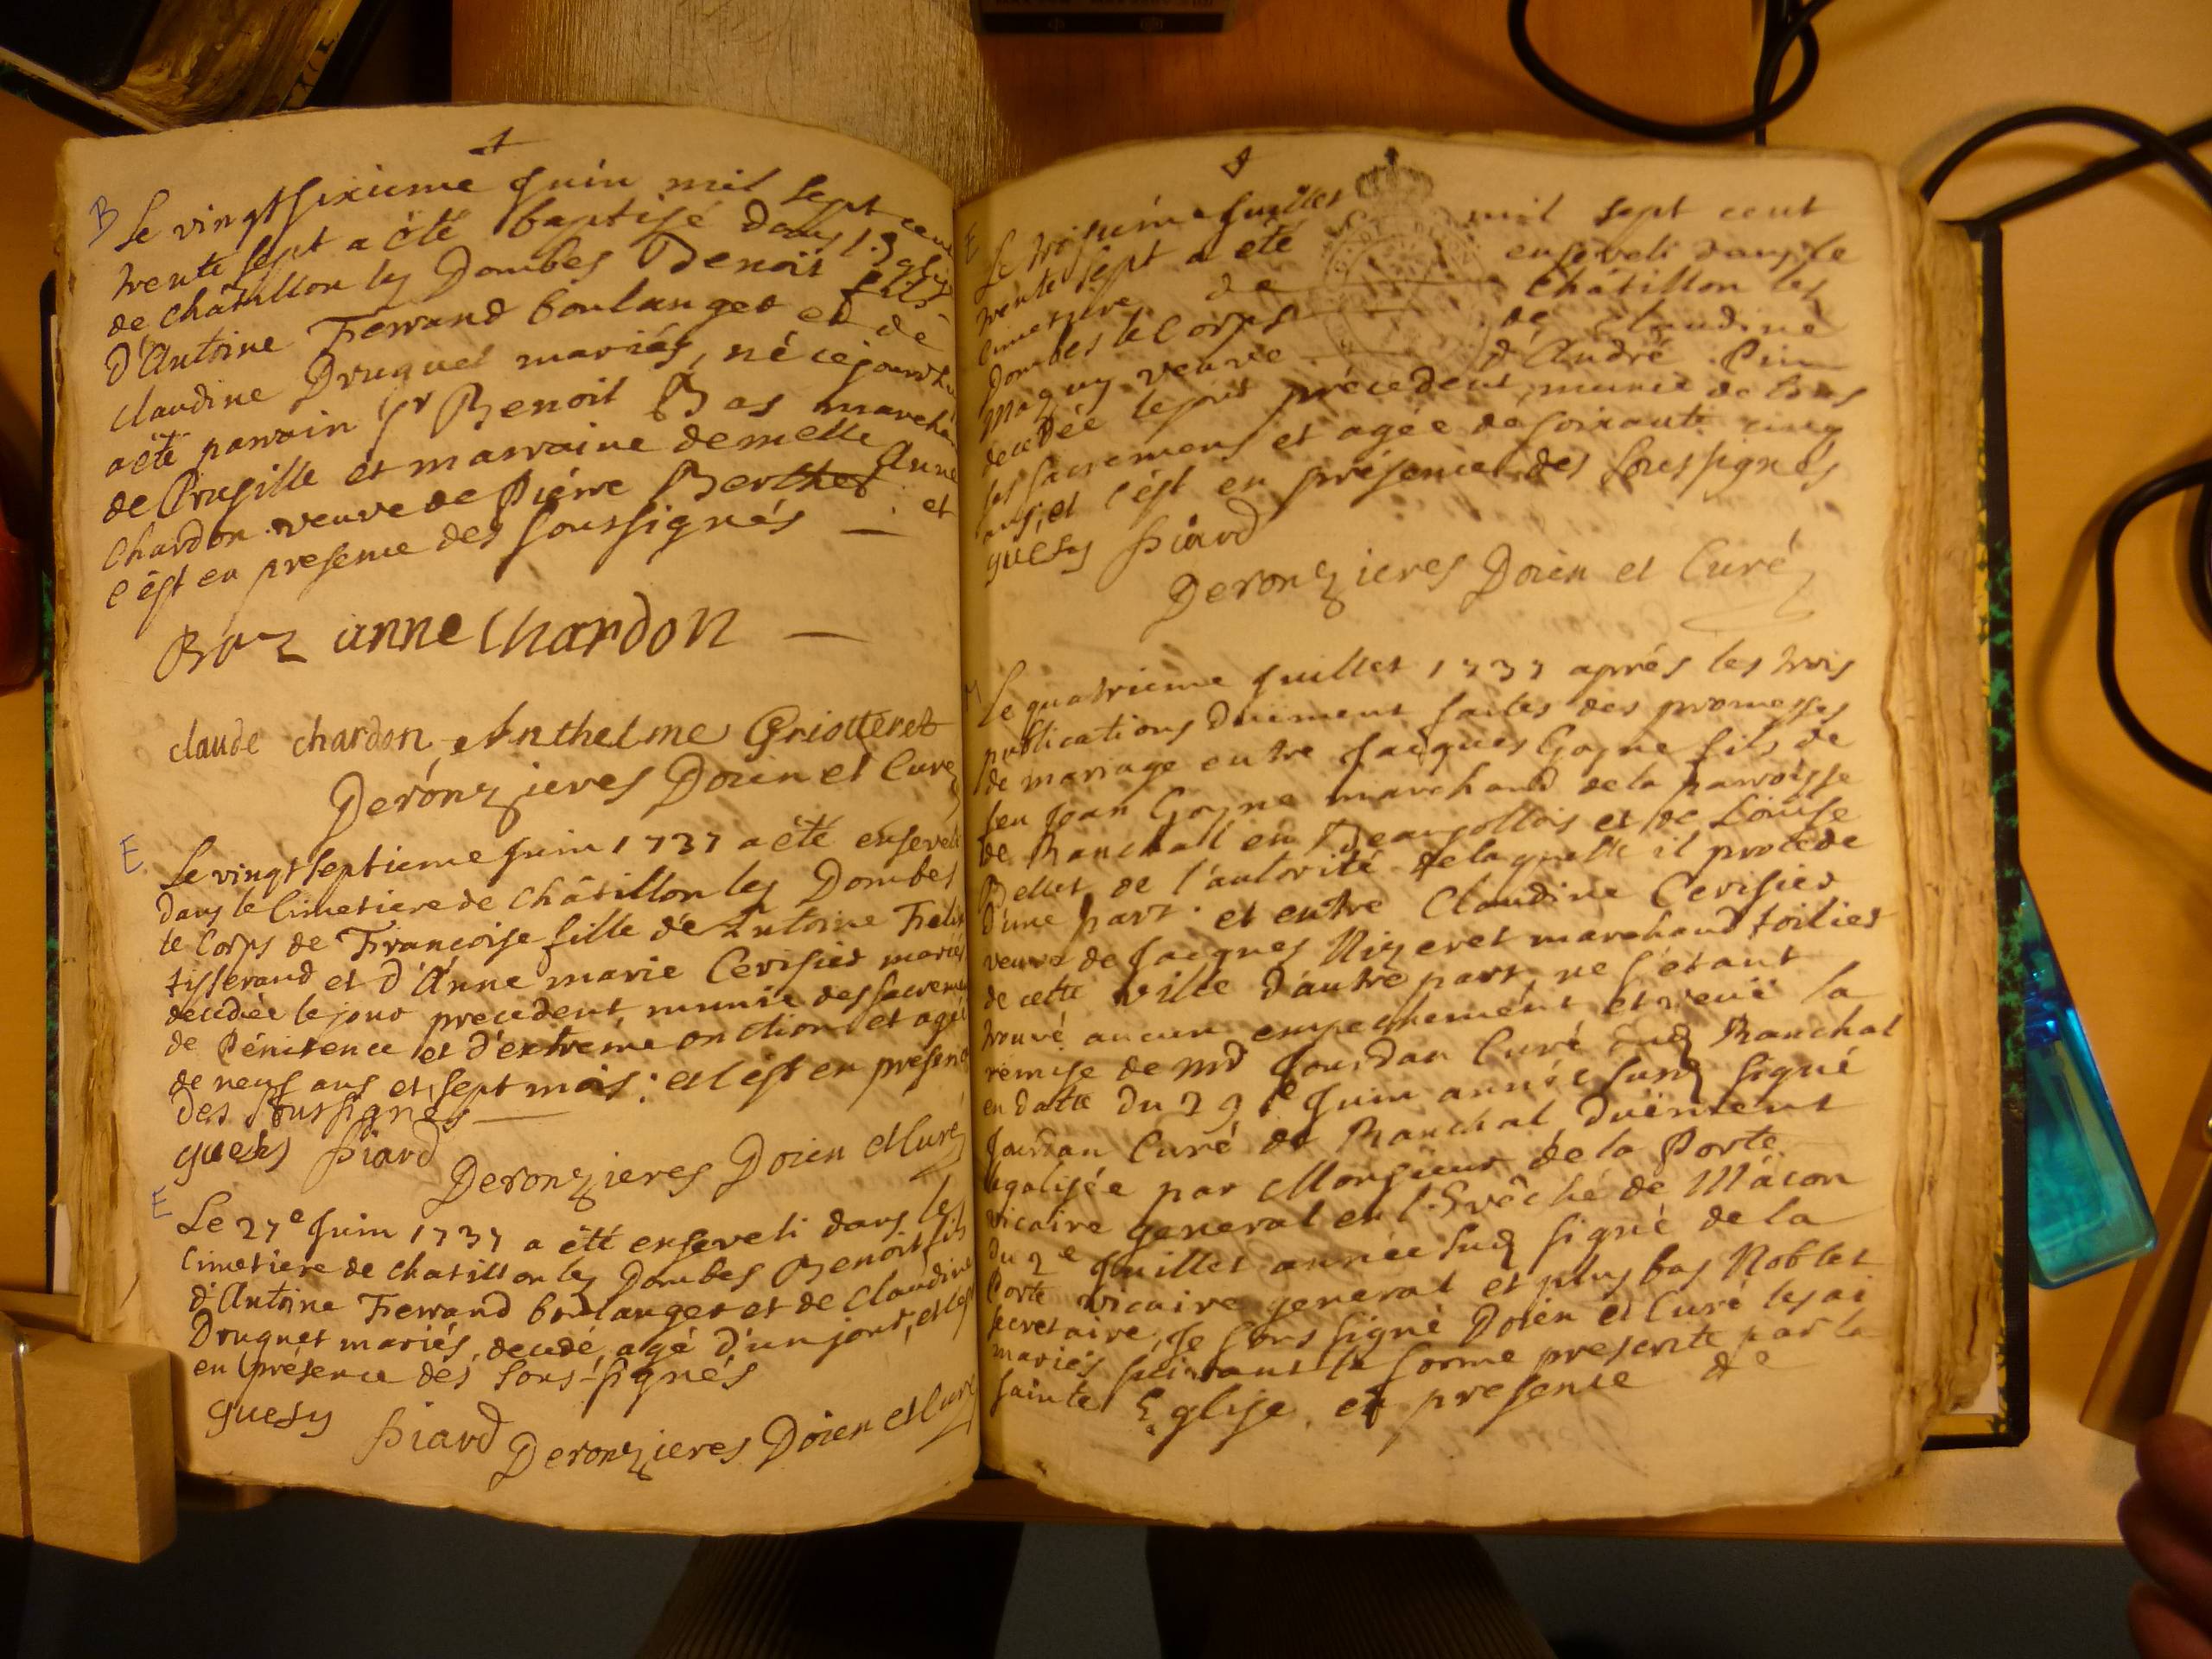 B Le vingt sixieme Juin mil sept cent
trente sept a été baptisé dans l'Eglise
de châtillon les Dombes Benoit fils
d'Antoine Ferrand boulanger et de
claudine Druguet mariés, né cejourd'hui
a été parrain Sr Benoit Bas marchand
de Prusille et marraine demelle Anne
Chardon veuve de Piérre Berthet et
c'ést en presence des soussignés
Baz anne Chardon
claude chardon, Anthelme Griotteret
Deronzieres Doien et Curé
E Le vingt septieme Juin 1737 a été enseveli
dans le Cimetiere de Châtillon les Dombes
le Corps de Francoise fille de Antoine
tisserand et d'Anne marie Cerisier mariés
decedée le jour precedent munie des sacremens
de Pénitence et d'extrême onction et agée
de neuf ans et sept mois : et c'ést en presence
des soussignés
guesy Siard
Deronzieres Doien et Curé
E Le 27e Juin 1737 a été enseveli dans le
Cimetiere de chatillon les Dombes Benoit fils
d'Antoine Ferrand boulanger et de Claudine
Druguet mariés, decedé, agé d'un jour, et c'est
en présence des sous-signés
guesy Siard Deronzieres Doien et Curé
E Le troisieme Juillet mil sept cent
trente sept a été enseveli dans le
Cimetiere de Châtillon les
Dombes le Corps de Claudine
Moguy veuve d'André
decedée le jour précedent, munie de tous
les sacremens et agée de soixante cinq
ans, et c'ést en présence des soussignés
guesy Siard
Deronzieres Doien et Curé
Le quatrieme Juillet 1737 aprés les trois
publications duement faites des promesses
de mariage entre Jacques Gogne fils de
feu Jean Gogne marchand de la parroisse
de Ranchall en Beaujollois et de Louise
Bellet de l'autorité de laquelle il procede
d'une part. et entre Claudine Cerisier
veuve de Jacques Nizeret marchand toilier
de cette ville d'autre part, ne s'étant
trouvé aucun empechement et veüe la
remise de mr Jourdan Curé dud Ranchal
en datte du 29e Juin année susd signé
Jourdan Curé de Ranchal, duëment
légalisée par Monsieur de la Porte
vicaire general en l'Evêché de Mâcon
du 2e Juillet année susd signé de la
Porte vicaire general et plus bas Noblet
secretaire, Je soussigné Doien et Curé les ai
mariés suivant la forme prescrite par la
sainte Eglise. en presence de